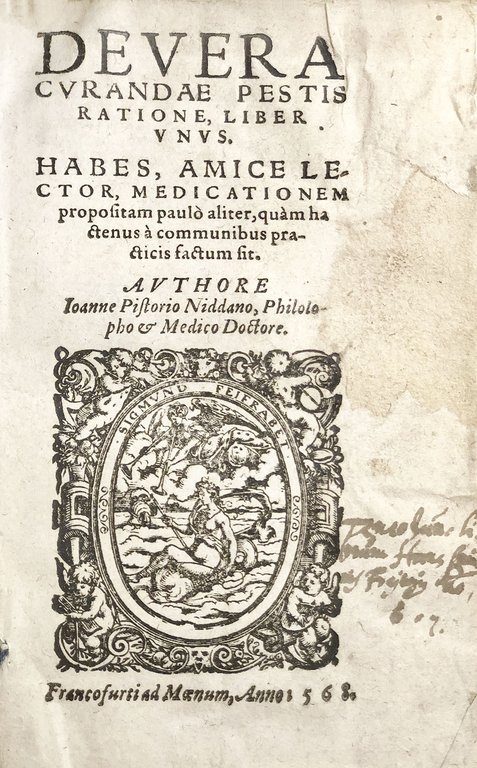 DE VERA
CVRANDAE PESTIS
RATIONE, LIBER
VNVS.
HABES, AMICE LE-
CTOR, MEDICATIONEM
propoſitam paulò aliter, quàm ha
ctenus à communibus pra-
cticis factum ſit.
AVTHORE
Ioanne Piſtorio Niddano, Philoſo-
pho & Medico Doctore.
SIGMVND FEIERABET
Francofurti ad Mœnum, Anno 1568.